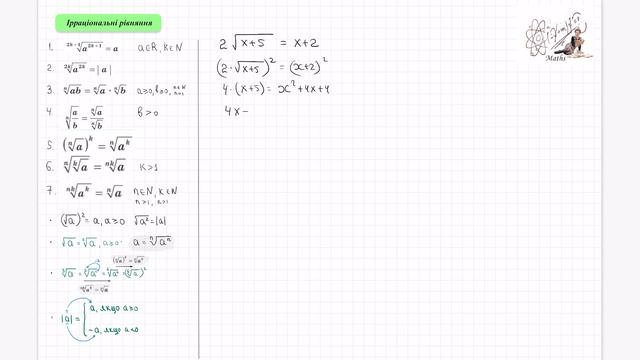 Ірраціональні рівняння
1. ²ᵏ⁻¹√a²ᵏ⁻¹ = a a∈R, K∈N
2. ²ᵏ√a²ᵏ = |a|
3. ⁿ√ab = ⁿ√a · ⁿ√b a≥0, b≥0, n∈N n>1
4. ⁿ√(a/b) = ⁿ√a / ⁿ√b b > 0
5. (ⁿ√a)ᵏ = ⁿ√aᵏ
6. ⁿ√(ᵏ√a) = ⁿᵏ√a K>1
7. ⁿᵏ√aᵏ = ⁿ√a n∈N, K∈N
n>1, K>1
· (√a)² = a, a≥0 √a² = |a|
· a≥0. a = ⁿ√aⁿ
· |a| = { a, якщо a≥0
-a, якщо a<0
2√x+5 = x+2
(2·√x+5)² = (x+2)²
4·(x+5) = x²+4x+4
4x -
Maths